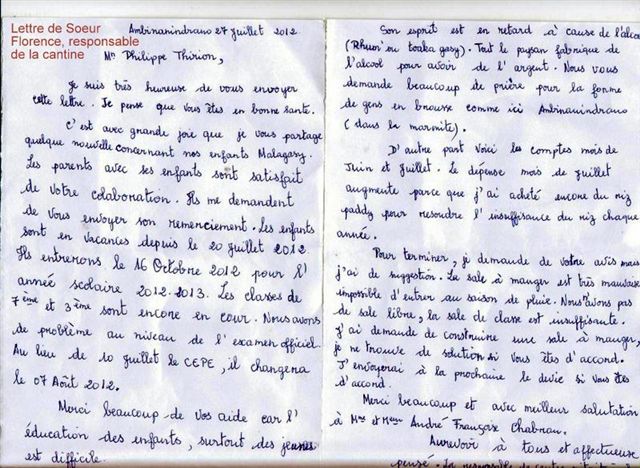 Lettre de Soeur
Florence, responsable
de la cantine
Ambinanindrano 27 juillet 2012
Mr Philippe Thirion,
Je suis très heureuse de vous envoyer
cette lettre. Je pense que vous êtes en bonne santé.
C'est avec grande joie que je vous partage
quelque nouvelle concernant nos enfants Malagasy.
Les parents avec ses enfants sont satisfait
de votre colaboration. Ils me demandent
de vous envoyer son remenciement. Les enfants
sont en vacances depuis le 20 juillet 2012.
Ils entrerons le 16 Octobre 2012 pour l'
année scolaire 2012-2013. Les classes de
7ème et 3ème sont encore en cour. Nous avons
de problème au niveau de l'examen officiel.
Au lieu de 10 juillet le CEPE, il changera
le 07 Août 2012.
Merci beaucoup de vos aide car l'
éducation des enfants, surtout des jeunes
est difficile.
Son esprit est en retard à cause de l'alcool
(Rhum ou toaka gasy). Tout le paysan fabrique de
l'alcool pour avoir de l'argent. Nous vous
demande beaucoup de prière pour la forme
de gens en brousse comme ici Ambinanindrano
(dans la marmite).
D'autre part voici les comptes mois de
Juin et juillet. Le dépense mois de juillet
augmente parce que j'ai acheté encore du riz
paddy pour resoudre l'insuffisance du riz chaque
année.
Pour terminer, je demande de votre avis mais
j'ai de suggestion. La sale à manger est très mauvaise
impossible d'entrer au saison de pluie. Nous n'avons pas
de sale libre, la sale de classe est insuffisante.
J'ai demande de construire une sale à manger,
je ne trouve de solution si vous êtes d'accord.
J'envoyerai à la prochaine le devie si vous êtes
d'accord.
Merci beaucoup et avec meilleur salutation
à Mrs et Mme André Françoise Chabran.
Aurevoir à tous et affectueuse
pensé.